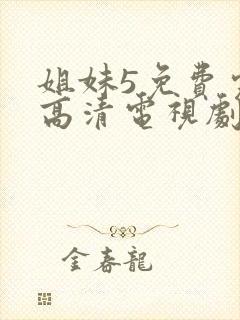 姐妹5免費
高清電視劇
金春龍